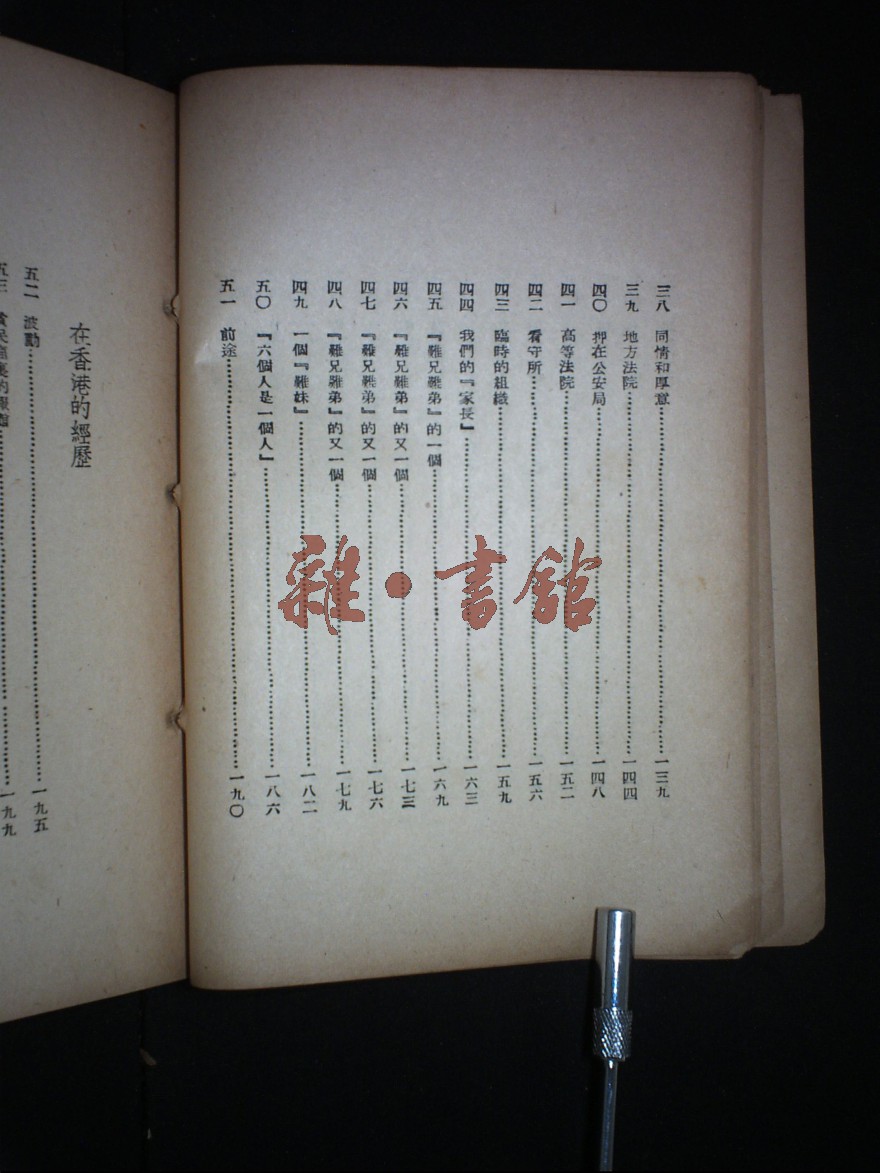 三八 同情和厚意……一三九
三九 地方法院……一四四
四〇 押在公安局……一四八
四一 高等法院……一五二
四二 看守所……一五六
四三 臨時的組織……一五九
四四 我們的『家長』……一六三
四五 『難兄難弟』的一個……一六九
四六 『難兄難弟』的又一個……一七三
四七 『難兄難弟』的又一個……一七六
四八 『難兄難弟』的又一個……一七九
四九 一個『難妹』……一八二
五〇 『六個人是一個人』……一八六
五一 前途……一九〇
在香港的經歷
五二 波動……一九五
五三 貧民窟裏的報館……一九九
雜·書館